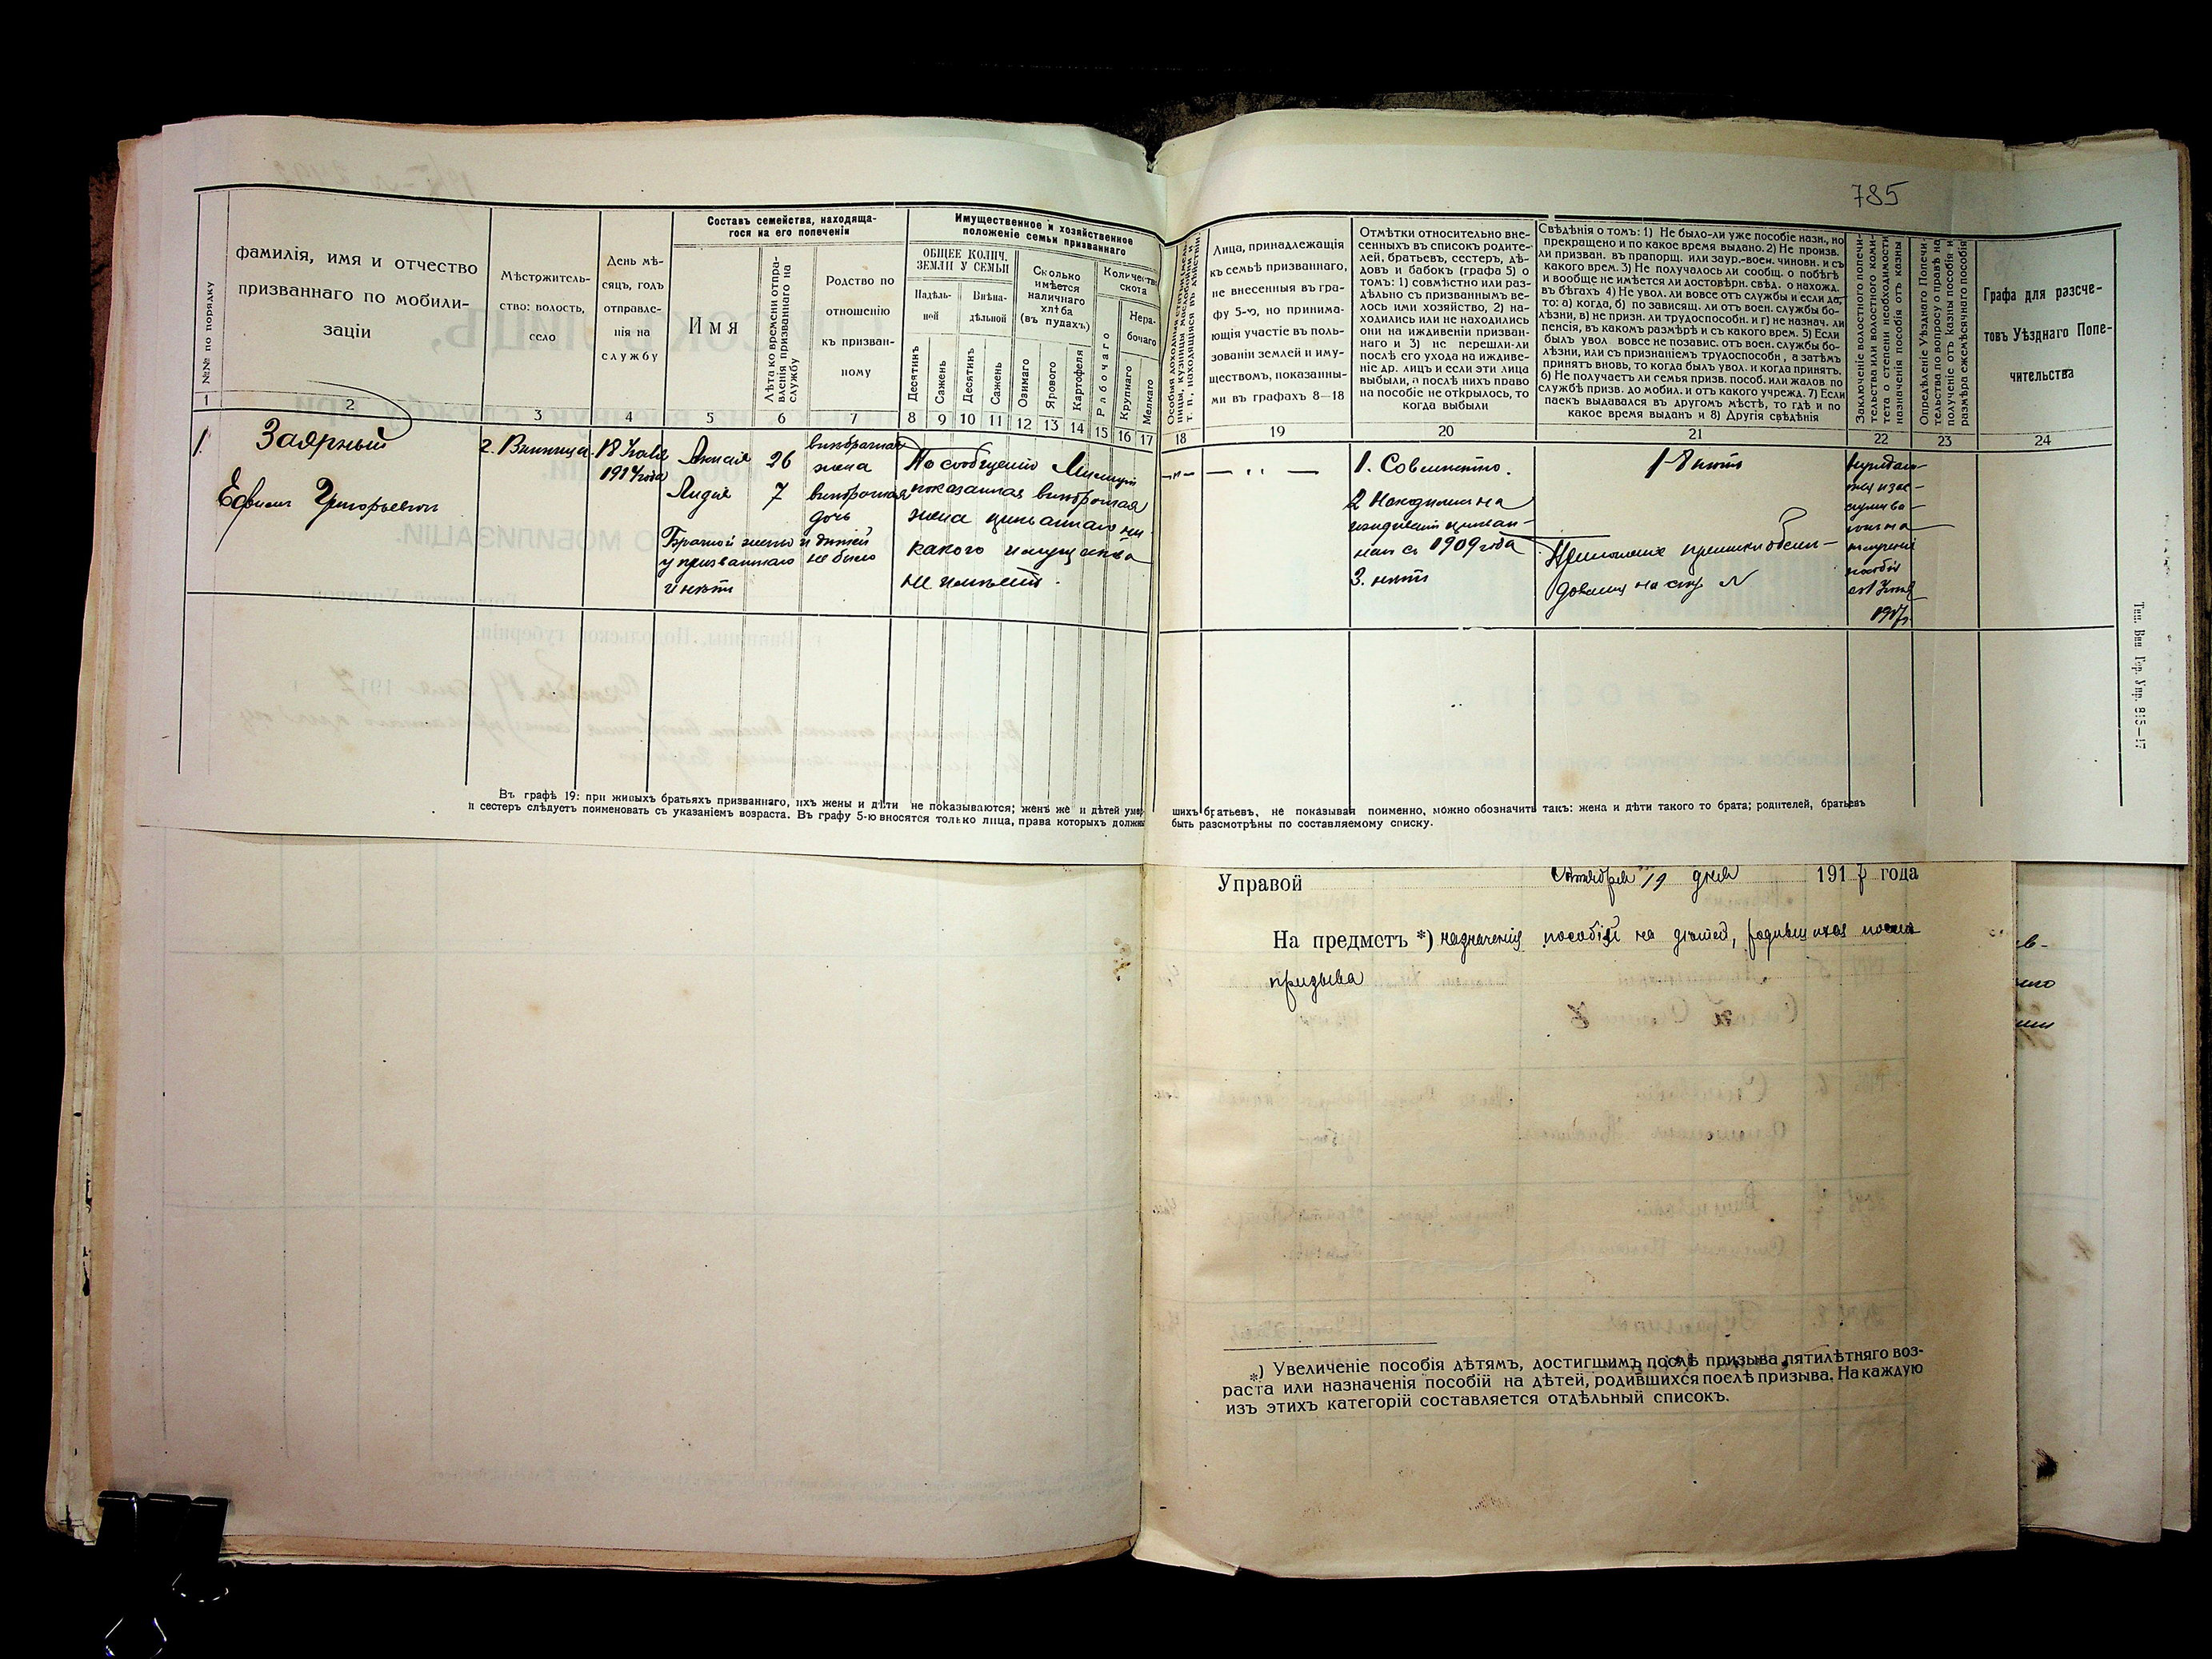 785
№№ по порядку
фамилія, имя и отчество
призваннаго по мобили-
заціи
Мѣстожитель-
ство: волость,
село
День мѣ-
сяцъ, годъ
отправле-
нія на
службу
Составъ семейства, находяща-
гося на его попеченіи
Имя
Лѣта ко времени отпра-
вленія призваннаго на
службу
Родство по
отношенію
къ призван-
ному
Имущественное и хозяйственное
положеніе семьи призваннаго
ОБЩЕЕ КОЛИЧ.
ЗЕМЛИ У СЕМЬИ
Надѣль-
ной
Внѣна-
дѣльной
Десятинъ
Сажень
Десятинъ
Сажень
Сколько
имѣется
наличнаго
хлѣба
(въ пудахъ)
Озимаго
Ярового
Картофеля
Количество
скота
Рабочаго
Нера-
бочаго
Крупнаго
Мелкаго
Лица, принадлежащія
къ семьѣ призваннаго,
не внесенныя въ гра-
фу 5-ю, но принима-
ющія участіе въ поль-
зованіи землей и иму-
ществомъ, показанны-
ми въ графахъ 8—18
Отмѣтки относительно вне-
сенныхъ въ списокъ родите-
лей, братьевъ, сестеръ, дѣ-
довъ и бабокъ (графа 5) о
томъ: 1) совмѣстно или раз-
дѣльно съ призваннымъ ве-
лось ими хозяйство, 2) на-
ходились или не находились
они на иждивеніи призван-
наго и 3) не перешли-ли
послѣ его ухода на иждиве-
ніе др. лицъ и если эти лица
выбыли, а послѣ нихъ право
на пособіе не открылось, то
когда выбыли
Свѣдѣнія о томъ: 1) Не было-ли уже пособіе назн., но
прекращено и по какое время выдано. 2) Не произв.
ли призван. въ прапорщ. или заур.-воен. чиновн. и съ
какого врем. 3) Не получалось ли сообщ. о побѣгѣ
и вообще не имѣется ли достовѣрн. свѣд. о нахожд.
въ бѣгахъ 4) Не увол. ли вовсе отъ службы и если да,
то: а) когда, б) по зависящ. ли отъ воен. службы бо-
лѣзни, в) не призн. ли трудоспособн. и г) не назнач. ли
пенсія, въ какомъ размѣрѣ и съ какого врем. 5) Если
былъ увол вовсе не позавис. отъ воен. службы бо-
лѣзни, или съ признаніемъ трудоспособн, а затѣмъ
принятъ вновь, то когда былъ увол. и когда принятъ.
6) Не получаетъ ли семья призв. пособ. или жалов. по
службѣ призв. до мобил. и отъ какого учрежд. 7) Если
паекъ выдавался въ другомъ мѣстѣ, то гдѣ и по
какое время выданъ и 8) Другія свѣдѣнія
Заключеніе волостного попечи-
тельства или волостного коми-
тета о степени необходимости
назначенія пособія отъ казны
Опредѣленіе Уѣзднаго Попечи-
тельства по вопросу о правѣ на
полученіе отъ казны пособія и
размѣра ежемѣсячнаго пособія
Графа для разсче-
товъ Уѣзднаго Попе-
чительства
1 2 3 4 5 6 7 8 9 10 11 12 13 14 15 16 17 18 19 20 21 22 23 24
1. Заярный
Ефимъ Григорьевичъ
г. Винница
18 Іюля
1914 года
Анна 26 внѣбрачная
жена
Лидія 7 внѣбрачная
дочь
Брачной жены и дѣтей
у призваннаго не было
и нѣтъ
По сообщенію Милиціи
показанная внѣбрачная
жена призваннаго ни-
какого имущества
не имѣетъ.
1. Совмѣстно.
2 Находились на
иждивеніи призван-
наго съ 1909 года
3. нѣтъ
1-8 нѣтъ
пособія
1917 г.
Въ графѣ 19: при живыхъ братьяхъ призваннаго, ихъ жены и дѣти не показываются; женъ же и дѣтей умер-
шихъ братьевъ, не показывая поименно, можно обозначить такъ: жена и дѣти такого то брата; родителей, братьевъ
и сестеръ слѣдуетъ поименовать съ указаніемъ возраста. Въ графу 5-ю вносятся только лица, права которыхъ должны
быть разсмотрѣны по составляемому списку.
Тип. Вин. Гор. Упр. 815—17
Управой Октября 19 дня 1917 года
На предметъ *) назначенія пособія на дѣтей, родившихся послѣ
призыва
*) Увеличеніе пособія дѣтямъ, достигшимъ послѣ призыва пятилѣтняго воз-
раста или назначенія пособій на дѣтей, родившихся послѣ призыва. На каждую
изъ этихъ категорій составляется отдѣльный списокъ.